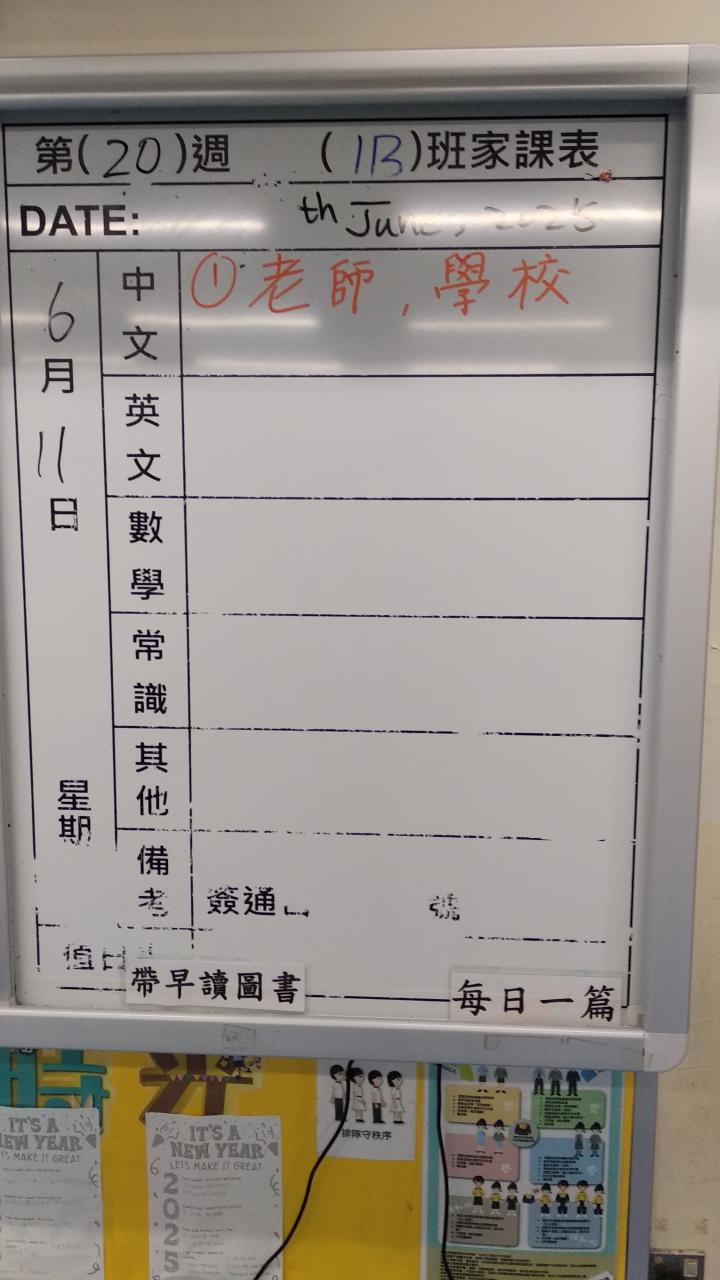 第(20)週 (1B)班家課表
DATE: th June, 2025
6月11日
星期
中文 ①老師,學校
英文
數學
常識
其他
備考 簽通 號
帶早讀圖書
每日一篇
時光
IT'S A
NEW YEAR
LETS MAKE IT GREAT
IT'S A
NEW YEAR
LETS MAKE IT GREAT
2025
排隊守秩序